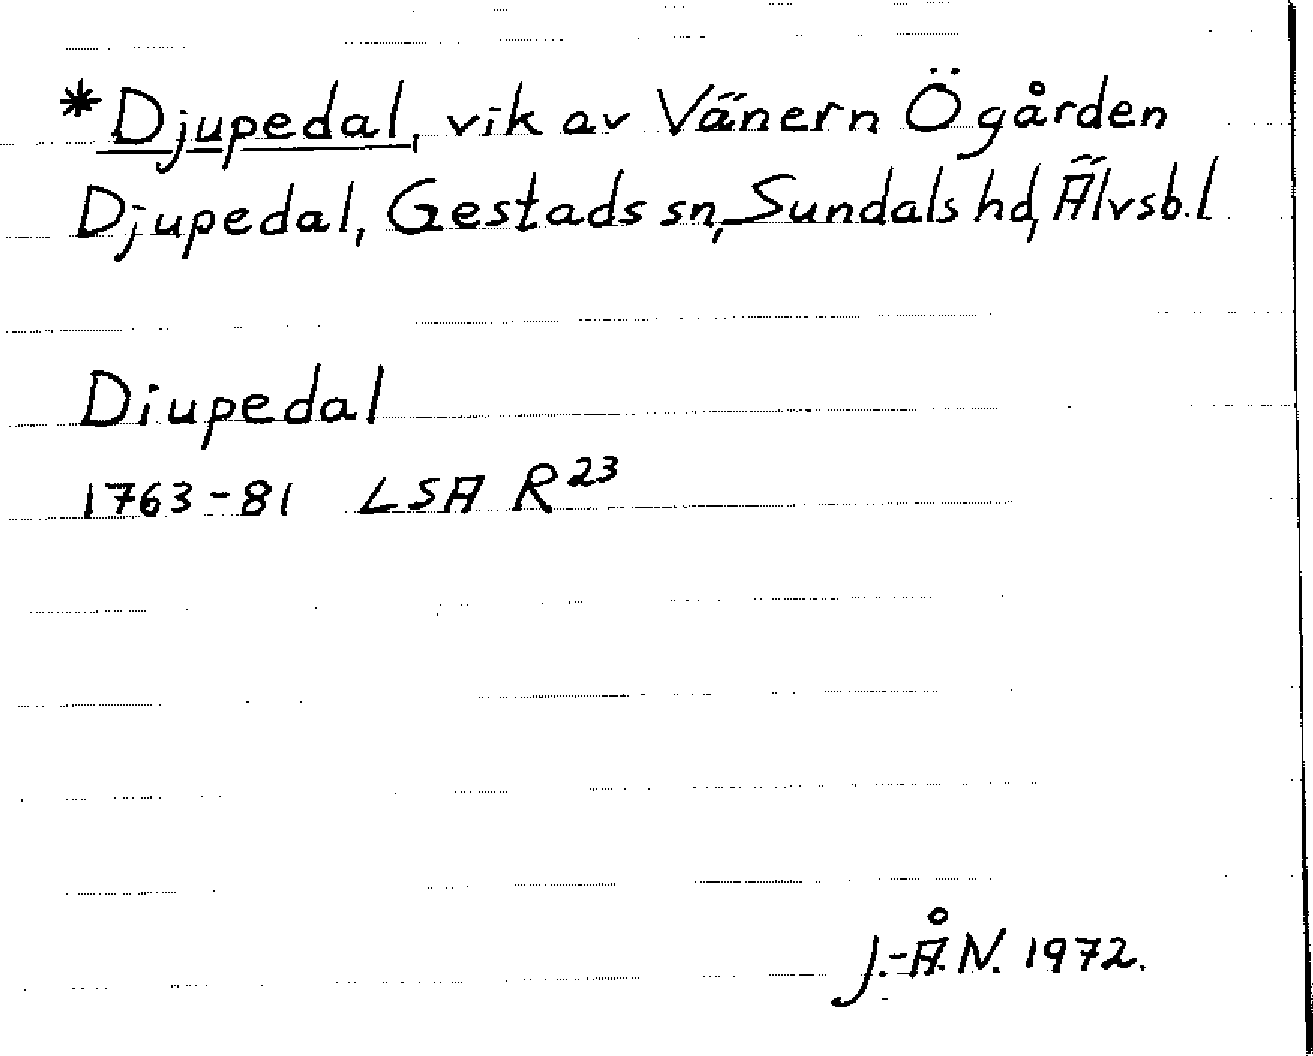 *Djupedal, vik av Vänern Ögården
Djupedal, Gestads sn, Sundals hd, Älvsb.l
Diupedal
1763-81 LSA R23
J.-Å.N. 1972.